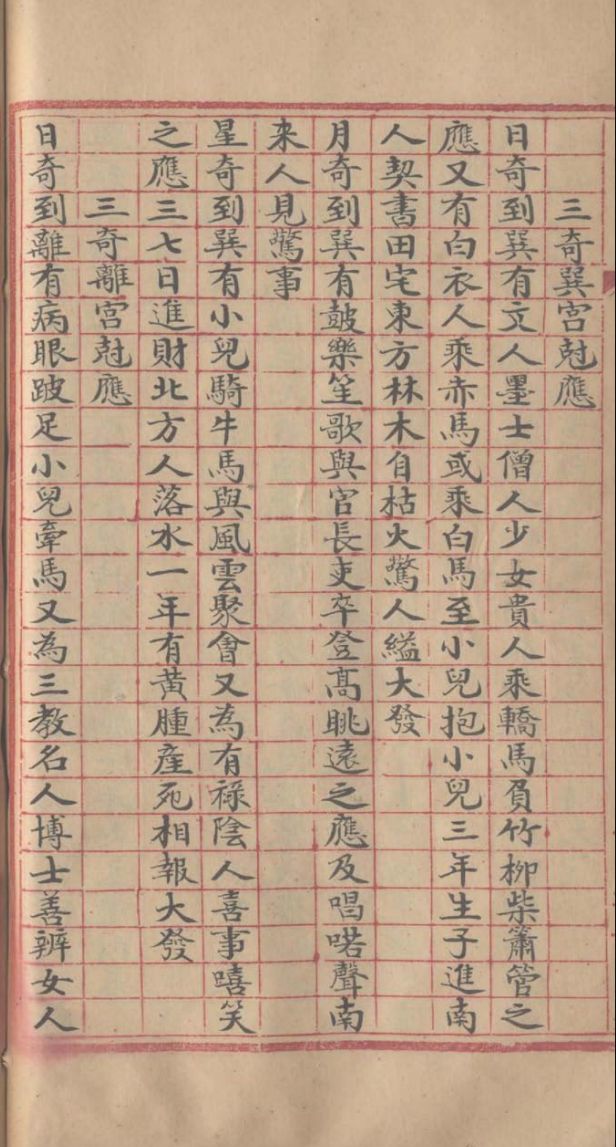 三奇巽宮尅應
日奇到巽有文人墨士僧人少女貴人乘轎馬負竹柳柴簫管之
應又有白衣人乘赤馬或乘白馬至小兒抱小兒三年生子進南
人契書田宅東方林木自枯火驚人縊大發
月奇到巽有皷樂笙歌與官長吏卒登高眺遠之應及唱喏聲南
來人見驚事
星奇到巽有小兒騎牛馬與風雲聚會又為有祿陰人喜事嘻笑
之應三七日進財北方人落水一年有黃腫產死相報大發
三奇離宮尅應
日奇到離有病眼跛足小兒牽馬又為三教名人博士善辨女人